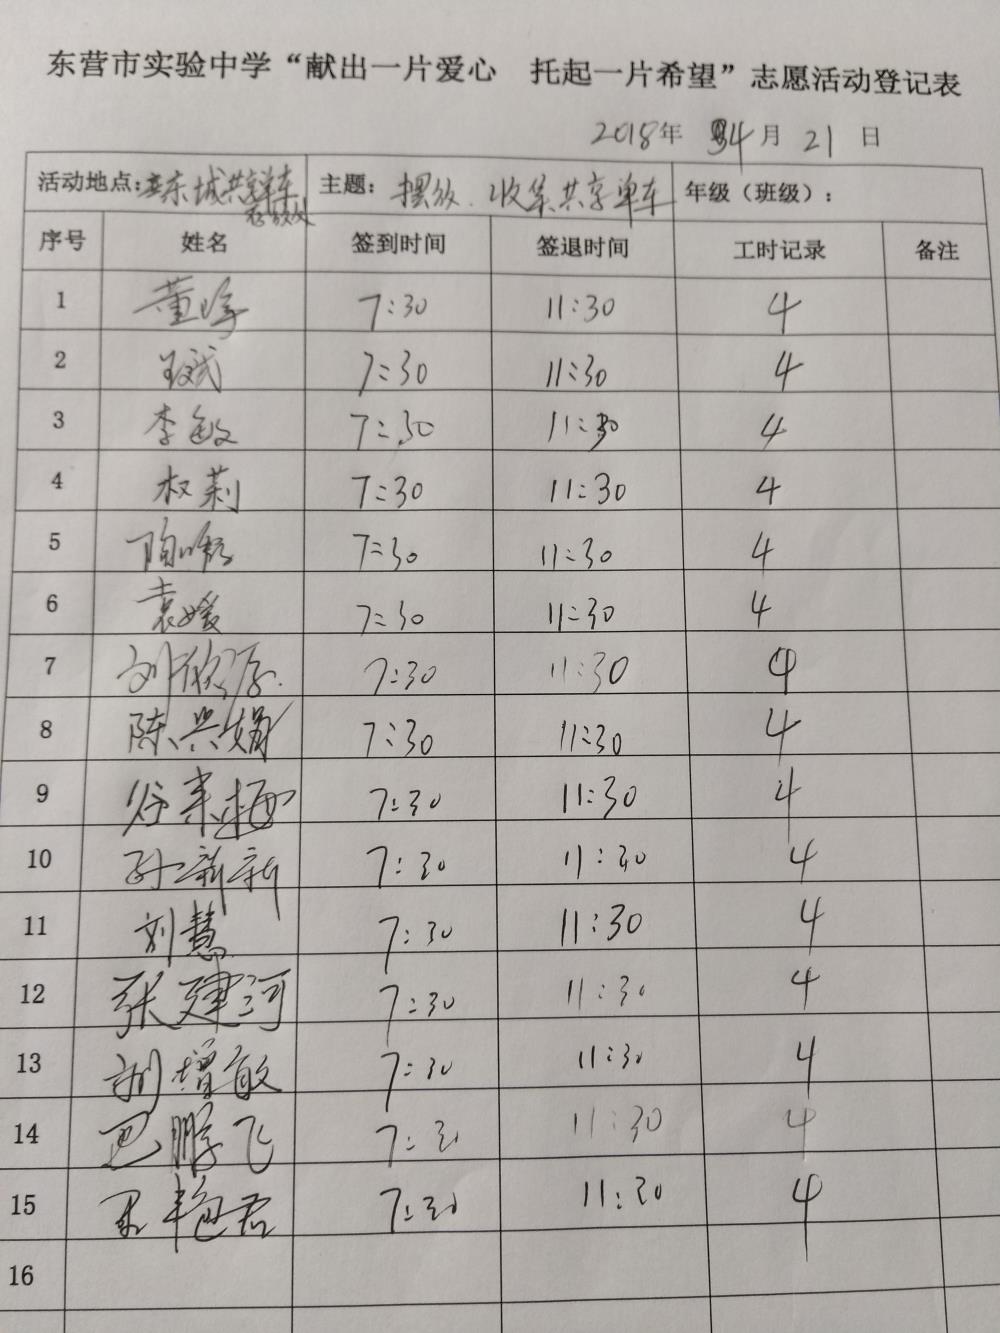 东营市实验中学“献出一片爱心 托起一片希望”志愿活动登记表
2018年 4月 21日
活动地点：东城共享单车存放处 主题：摆放、收集共享单车 年级（班级）：
序号 姓名 签到时间 签退时间 工时记录 备注
1 董 7:30 11:30 4
2 王斌 7:30 11:30 4
3 李敏 7:30 11:30 4
4 权莉 7:30 11:30 4
5 7:30 11:30 4
6 袁媛 7:30 11:30 4
7 刘欣 7:30 11:30 4
8 陈兴娟 7:30 11:30 4
9 谷来梅 7:30 11:30 4
10 孙新新 7:30 11:30 4
11 刘慧 7:30 11:30 4
12 张建河 7:30 11:30 4
13 增敏 7:30 11:30 4
14 巴鹏飞 7:30 11:30 4
15 艳君 7:30 11:30 4
16